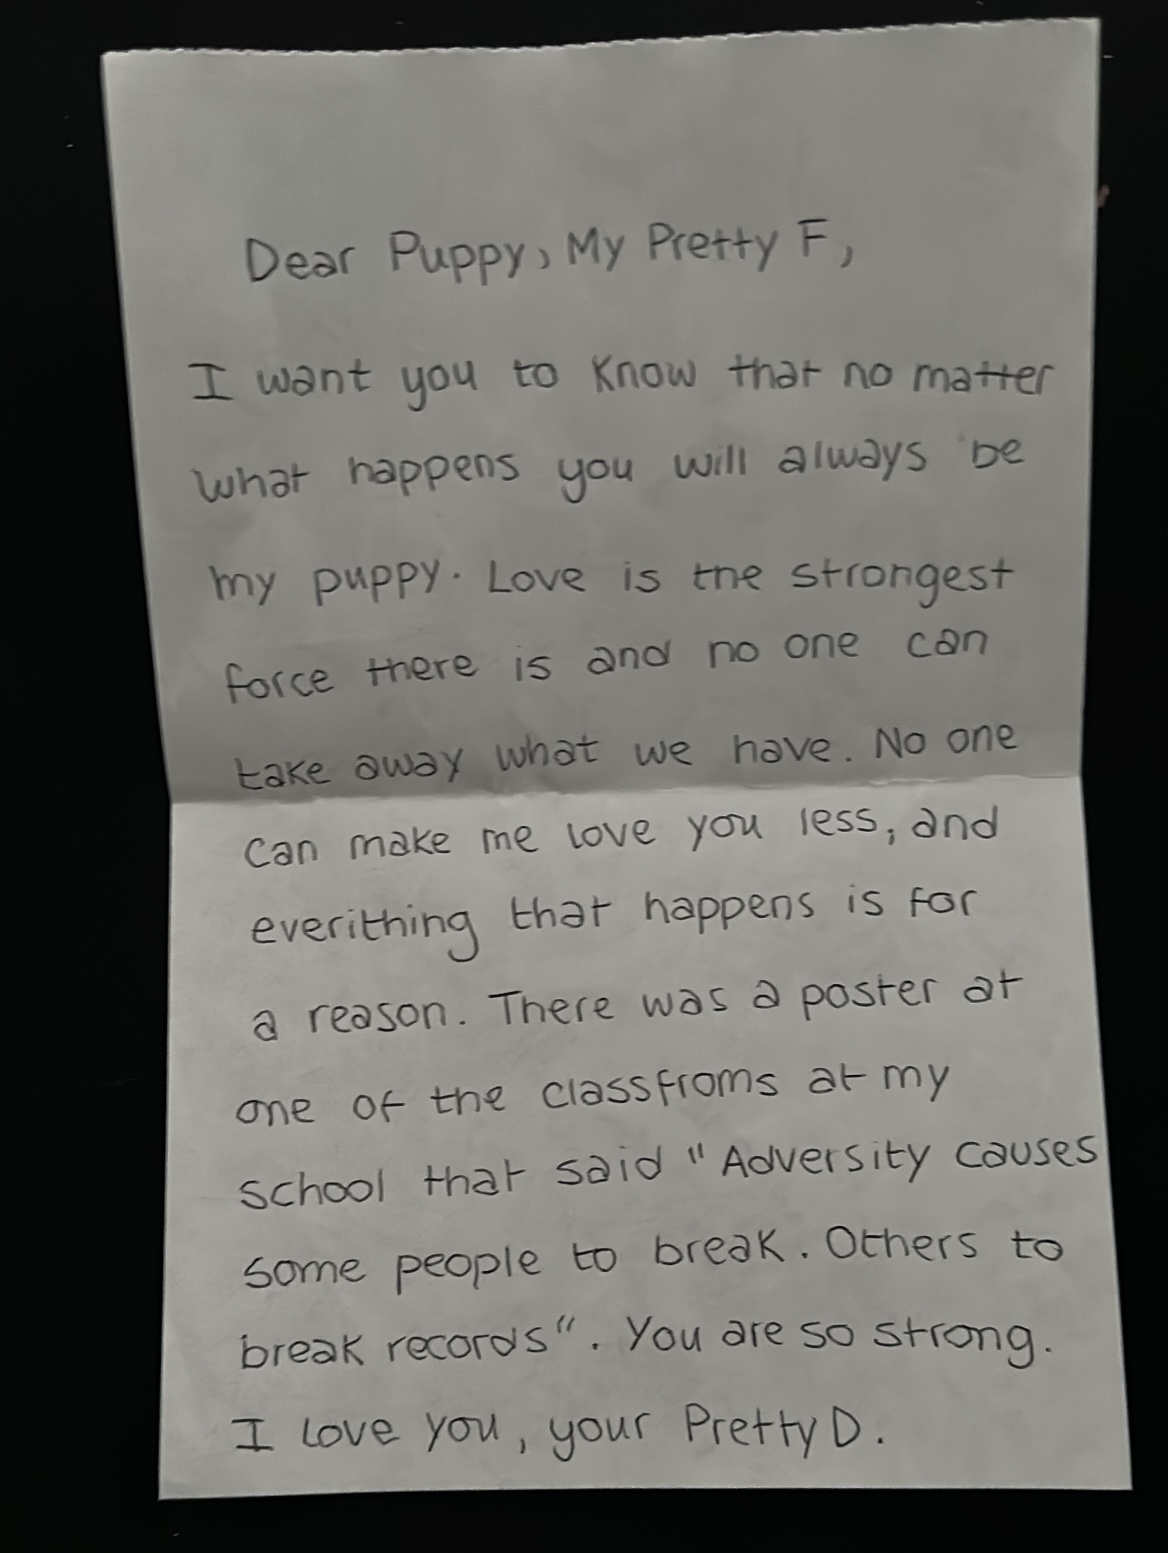 Dear Puppy, My Pretty F,
I want you to know that no matter
what happens you will always be
my puppy. Love is the strongest
force there is and no one can
take away what we have. No one
can make me love you less, and
everithing that happens is for
a reason. There was a poster at
one of the classfroms at my
school that said "Adversity causes
some people to break. Others to
break records". You are so strong.
I love you, your Pretty D.